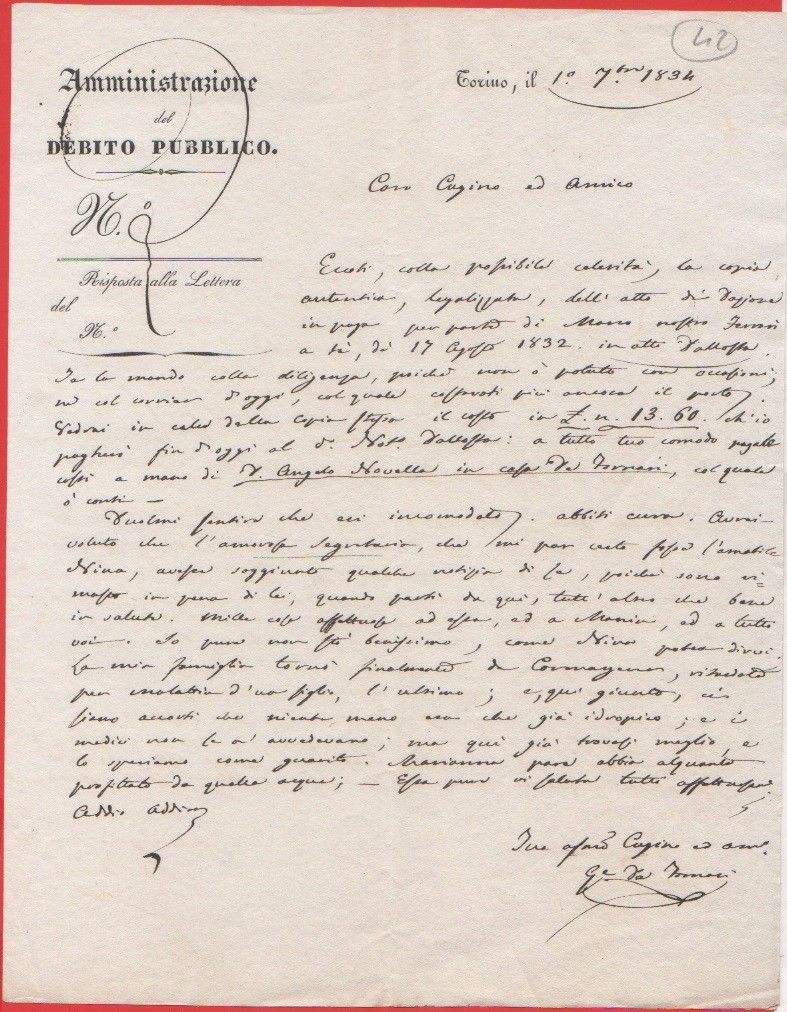 42
Amministrazione
del
DEBITO PUBBLICO.
Torino, il 1.º 7.bre 1834
N.º
Risposta alla Lettera
del
N.º
Caro Cugino ed Amico
Eccoti, colla possibile celerità, la copia
autentica, legalizzata, dell'atto di
in paga per parte di Marco nostro Ferrari
a te, de 17 Agosto 1832. in atti Dallosta.
Te la mando colla diligenza, poichè non ò potuto con occasioni,
nè col corrier d'oggi, col quale costavati più ancora il porto.
Vedrai in calce della Copia stessa il costo in £. n. 13.60. ch'io
pagherò fin d'oggi al Dallosta: a tutto tuo comodo
costì a mano di D. Angelo Novella in casa De Fornari, col quale
ò conti —
Duolmi sentire che eri incomodato. abbiti cura. Avrei
voluto che l'amorosa Segretaria, che mi par certo fosse l'amabile
Nina, avesse soggiunto qualche notizia di se, poichè sono ri=
masto in pena di lei, quando partì da quì, tutt'altro che bene
in salute. Mille cose affettuose ad essa, ed a Maria, ed a tutti
voi. Io pure non stò benissimo, come Nina potea dirvi
La mia famiglia tornò finalmente da
per malattia d'un figlio, l'ultimo; e, quì giunto, ci
siamo accorti che niente meno era che già idropico; e i
medici non se n'avvedevano; ma quì già trovasi meglio, e
lo speriamo come guarito. Marianna pare abbia alquanto
profittato da quelle acque; — Essa pure vi saluta tutti
Addio Addio
Cugino ed am.º
De Fornari